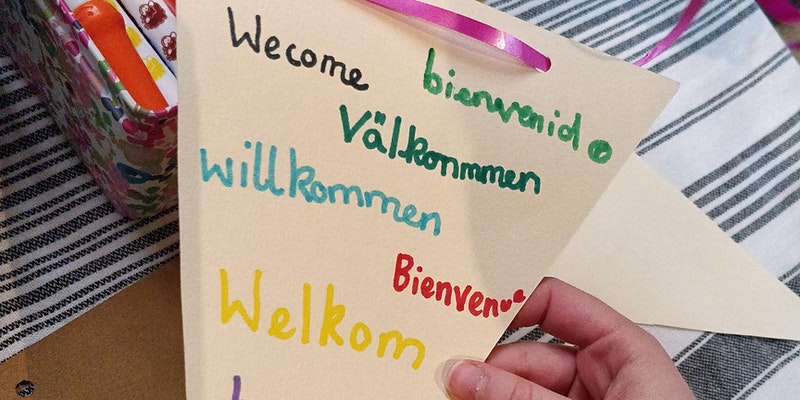 Wecome
bienvenido
Välkonmmen
willkommen
Bienvenue
Welkom